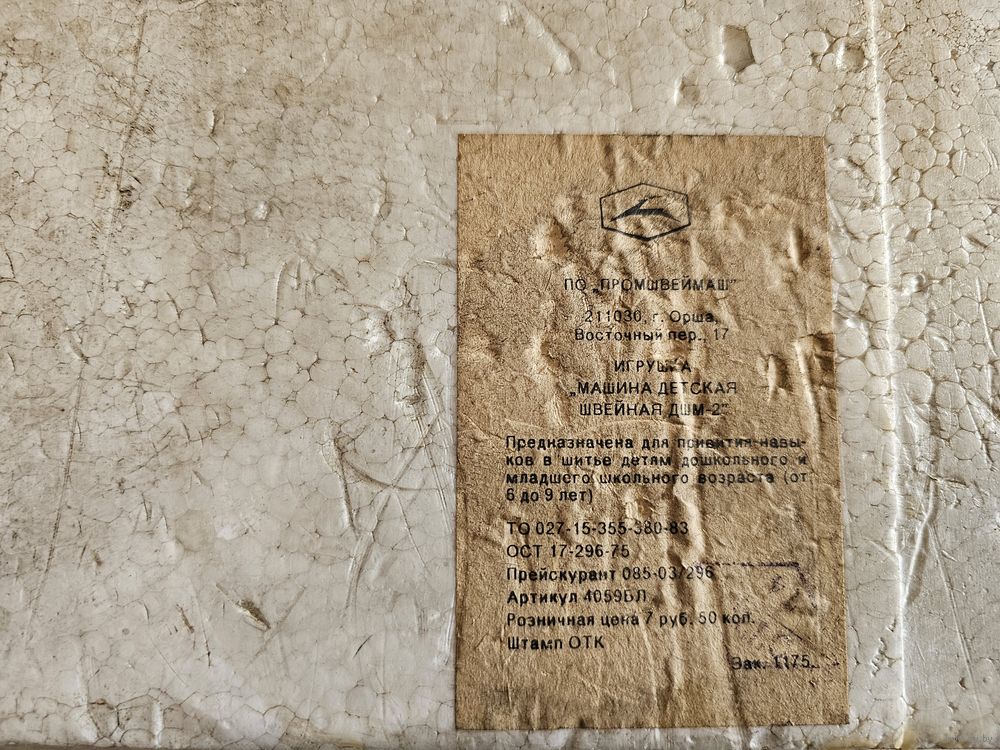 ПО „ПРОМШВЕЙМАШ"
211030, г. Орша,
Восточный пер., 17
ИГРУШКА
„МАШИНА ДЕТСКАЯ
ШВЕЙНАЯ ДШМ-2"
Предназначена для привития навы-
ков в шитье детям дошкольного и
младшего школьного возраста (от
6 до 9 лет)
ТО 027-15-355-380-83
ОСТ 17-296-75
Прейскурант 085-03/296
Артикул 4059БЛ
Розничная цена 7 руб. 50 коп.
Штамп ОТК
Зак. 1175.